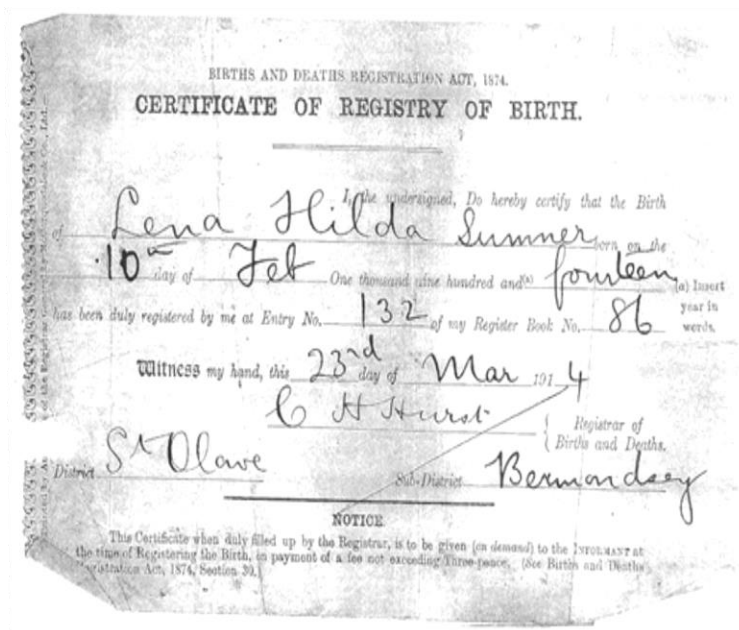 BIRTHS AND DEATHS REGISTRATION ACT, 1874.
CERTIFICATE OF REGISTRY OF BIRTH.
I, the undersigned, Do hereby certify that the Birth
of Lena Hilda Sumner born on the
10th day of Feb One thousand nine hundred and (a) fourteen (a) Insert year in words.
has been duly registered by me at Entry No. 132 of my Register Book No. 86
Witness my hand, this 23rd day of Mar 1914
C H Hurst Registrar of Births and Deaths.
District St Olave Sub-District Bermondsey
NOTICE
This Certificate when duly filled up by the Registrar, is to be given (on demand) to the INFORMANT at
the time of Registering the Birth, on payment of a fee not exceeding Three-pence. (See Births and Deaths
Registration Act, 1874, Section 30.)